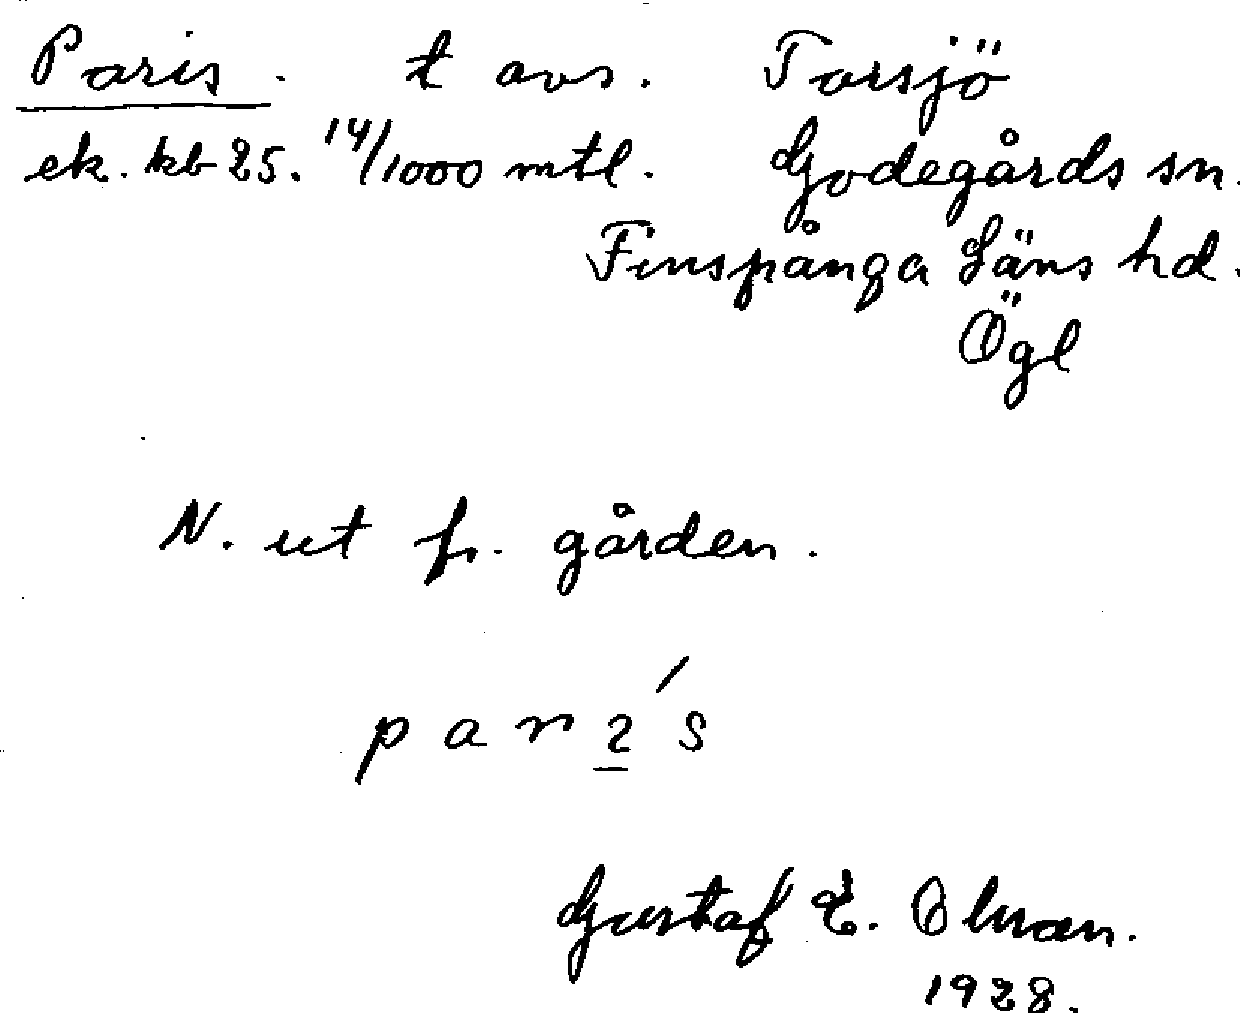 Paris. t avs. Torsjö
ek. kb 25. 14/1000 mtl. Godegårds sn.
Finspånga Läns hd.
Ögl
N. ut fr. gården.
par2́s
Gustaf E. Olman.
1928.